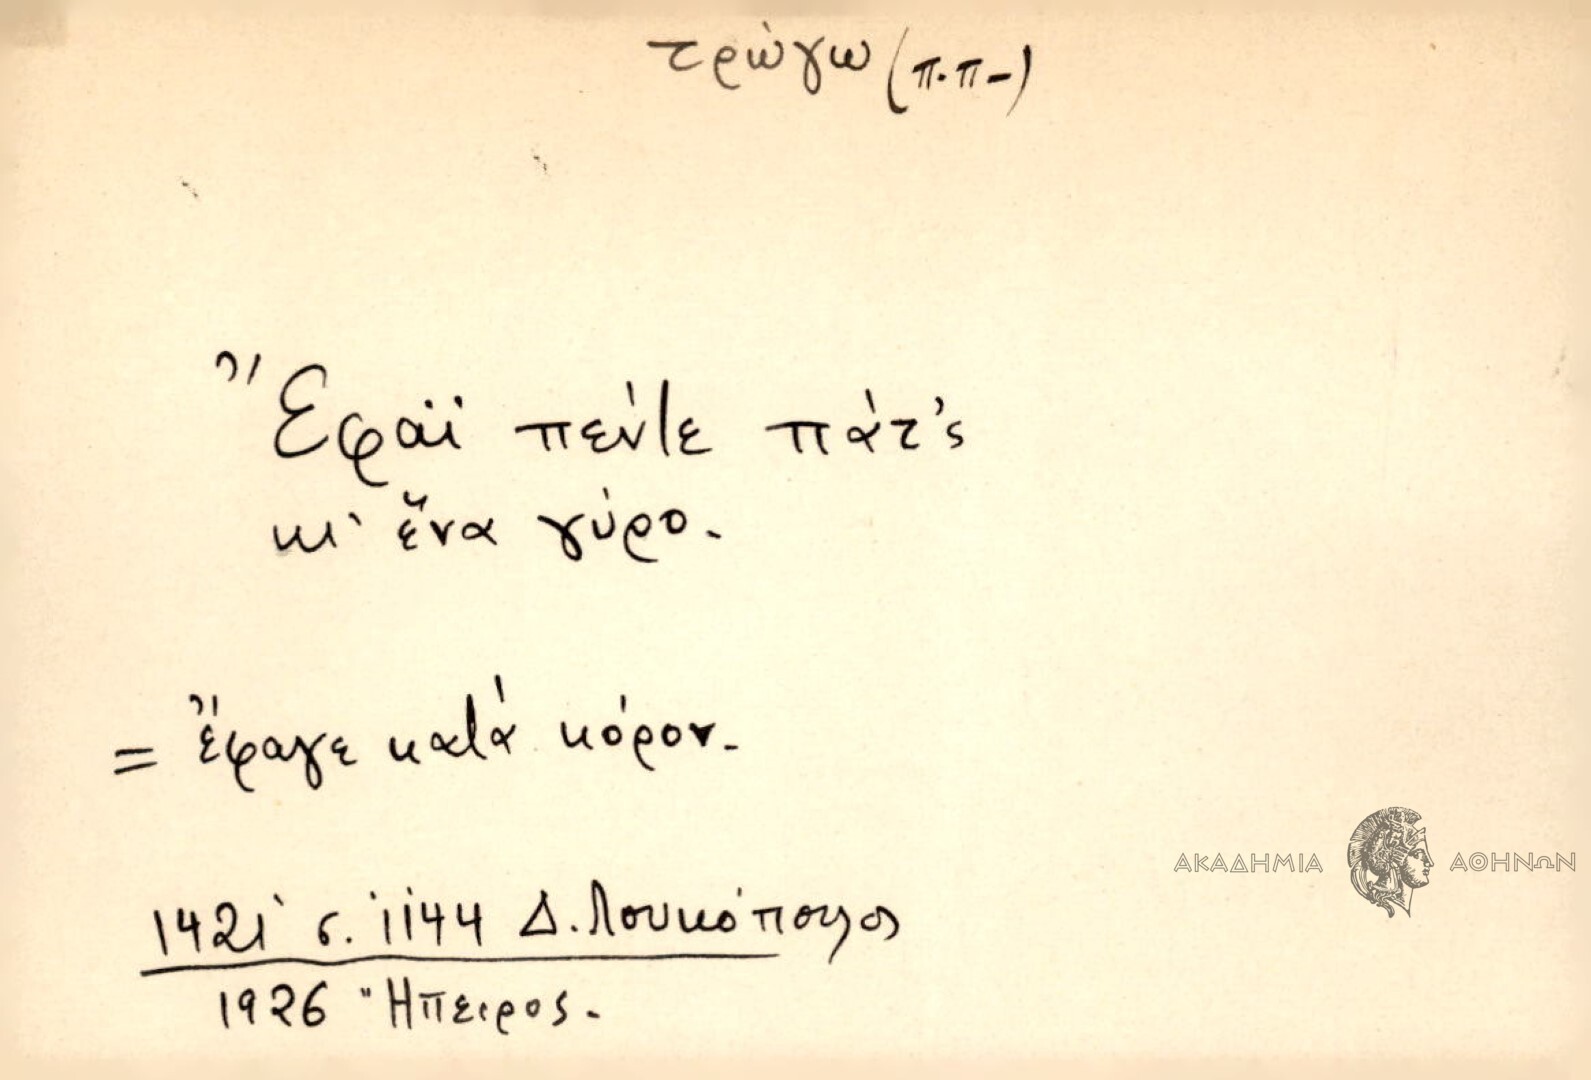 τρώγω (π.π-)
Ἔφαϊ πέντε πάτ'ς
κι' ἕνα γύρο.
= Ἔφαγε κατά κόρον.
1421 σ. 1144 Δ. Λουκόπουλος
1926 Ἤπειρος.
ΑΚΑΔΗΜΙΑ ΑΘΗΝΩΝ